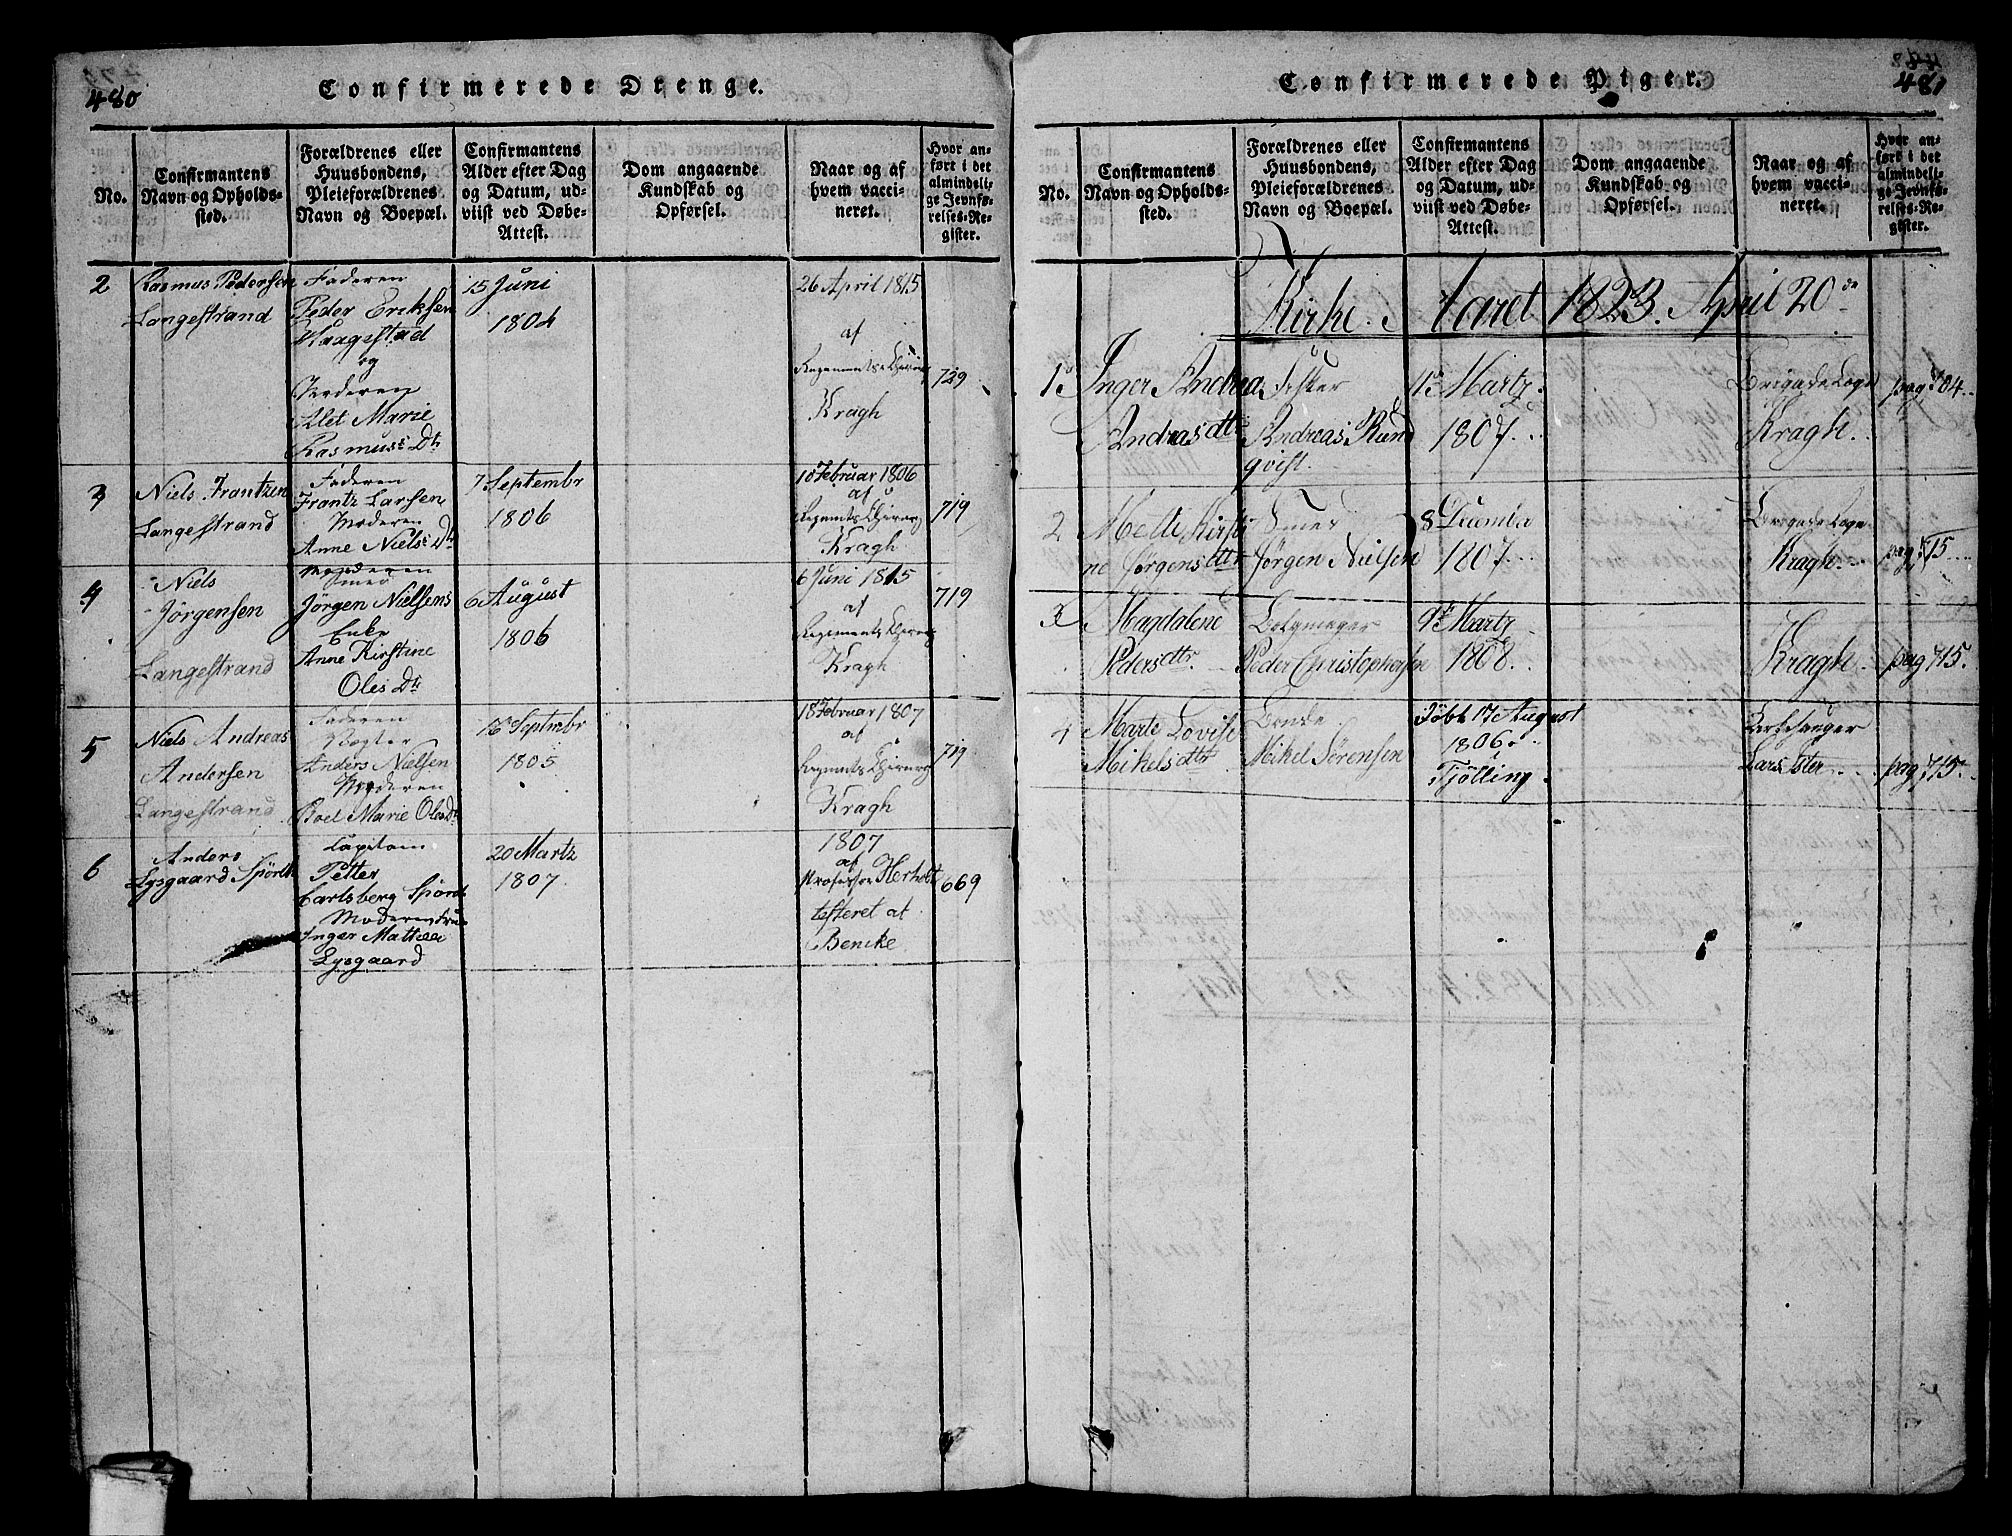 480
Confirmerede Drenge.
No.
Confirmantens
Navn og Opholds-
sted.
Forældrenes eller
Huusbondens,
Pleieforældrenes
Navn og Boepæl.
Confirmantens
Alder efter Dag
og Datum, ud-
viist ved Døbe-
Attest.
Dom angaaende
Kundskab og
Opførsel.
Naar og af
hvem vacci-
neret.
Hvor an-
ført i det
almindeli-
ge Jevnfø-
relses-Re-
gister.
2
Rasmus Pedersen
Langestrand
Faderen
Peder Eriksen
Haagestad
og
Moderen
Alet Marie
Rasmuss Dtr
15 Juni
1804
26 April 1815
af
Regements Chirurg
Kragh
729
3
Niels Frantzen
Langestrand
Faderen
Frantz Larsen
Moderen
Anne Niels Dtr
7 Septembr
1806
10 Februar 1806
af
Regements Chirurg
Kragh
719
4
Niels
Jörgensen
Langestrand
Moderen
Smed
Jörgen Nielsens
Enke
Anne Kirstine
Oles Dtr
6 August
1806
6 Juni 1815
af
Regements Chirurg
Kragh
719
5
Niels Andreas
Andersen
Langestrand
Faderen
Vægter
Anders Nielsen
Moderen
Boel Marie Olesdtr
16 Septembr
1805
18 Februar 1807
af
Regments Chirurg
Kragh
719
6
Anders
Lysgaard Spörck
Capitain
Petter
Carlsberg Spörck
Moderen Frue
Inger Mathea
Lysgaard
20 Martz
1807
1807
af
Professor Herholt
testeret at
Bencke
669
481
Confirmerede Piger.
No.
Confirmantens
Navn og Opholds-
sted.
Forældrenes eller
Huusbondens,
Pleieforældrenes
Navn og Boepæl.
Confirmantens
Alder efter Dag
og Datum, ud-
viist ved Døbe-
Attest.
Dom angaaende
Kundskab og
Opførsel.
Naar og af
hvem vacci-
neret.
Hvor an-
ført i det
almindeli-
ge Jevnfø-
relses-Re-
gister.
Kirke. Aaret 1823. April 20de
1
Inger Andrea
Andreasdtr
Fisker
Andreas Rund
qvist.
11te Martz
1807
Brigade Læge
Kragh.
pag. 704
2
Mette Kirsti
ne Jörgensdtr
Smed
Jörgen Nielsen
8 Decembr
1807
Brigade Læge
Kragh.
pag. 715
3
Magdalene
Pedersdtr
Bælgmager
Peder Christophersen
9de Martz
1808
Kragh.
pag. 715.
4
Marte Lovise
Mikelsdtr
Bonde
Mikel Sörensen
Döbt 17 August
1806
Tjölling.
Kirkesanger
Lars Ster
pag. 715.